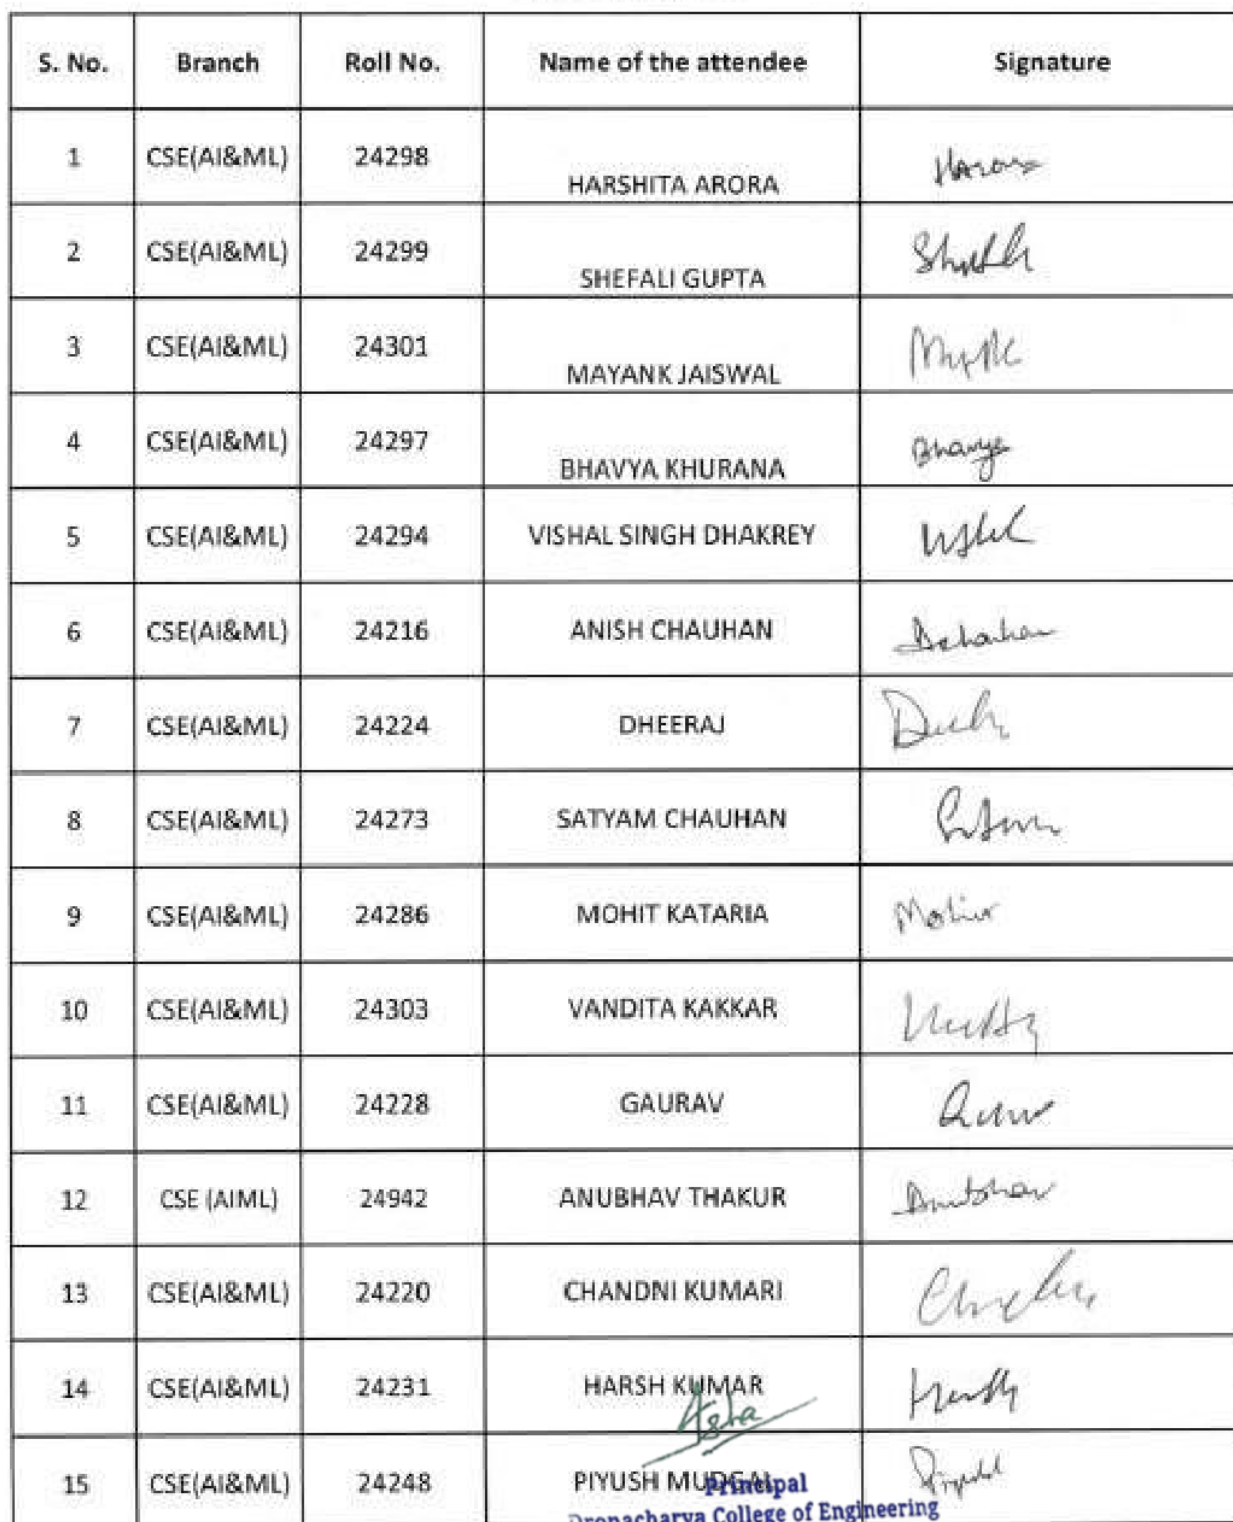 S. No. Branch Roll No. Name of the attendee Signature
1 CSE(AI&ML) 24298 HARSHITA ARORA Harora
2 CSE(AI&ML) 24299 SHEFALI GUPTA
3 CSE(AI&ML) 24301 MAYANK JAISWAL
4 CSE(AI&ML) 24297 BHAVYA KHURANA Bhavya
5 CSE(AI&ML) 24294 VISHAL SINGH DHAKREY
6 CSE(AI&ML) 24216 ANISH CHAUHAN
7 CSE(AI&ML) 24224 DHEERAJ
8 CSE(AI&ML) 24273 SATYAM CHAUHAN
9 CSE(AI&ML) 24286 MOHIT KATARIA
10 CSE(AI&ML) 24303 VANDITA KAKKAR
11 CSE(AI&ML) 24228 GAURAV
12 CSE (AIML) 24942 ANUBHAV THAKUR Anubhav
13 CSE(AI&ML) 24220 CHANDNI KUMARI
14 CSE(AI&ML) 24231 HARSH KUMAR
Asha
15 CSE(AI&ML) 24248 PIYUSH MUDGAL
Principal
Dronacharya College of Engineering